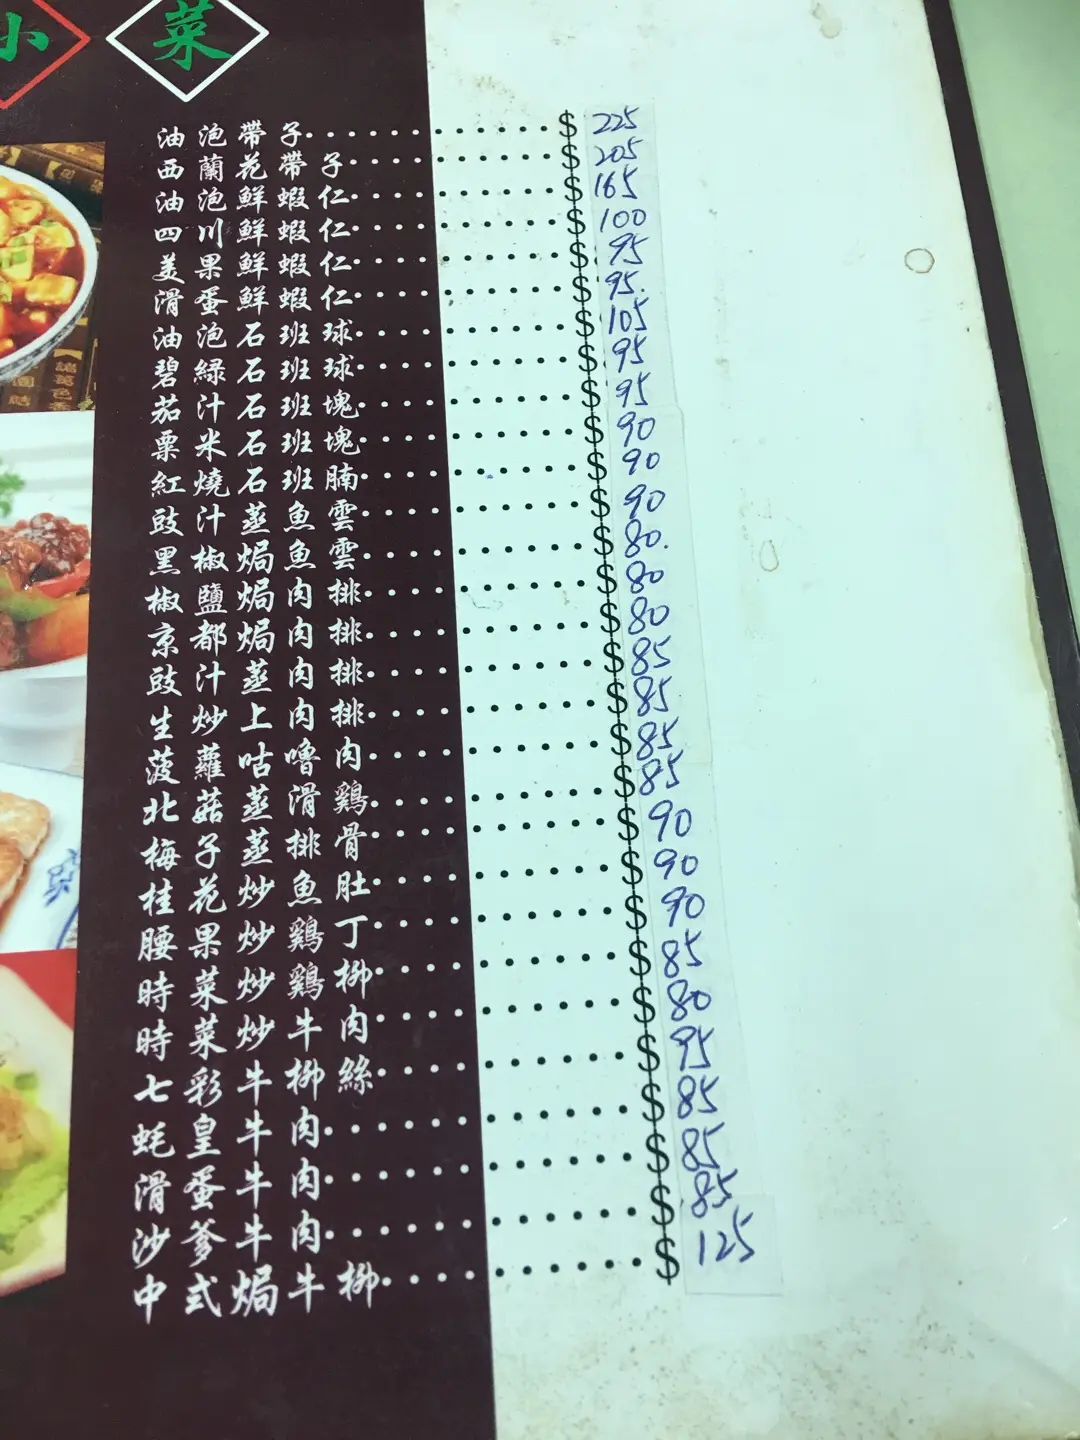 小菜
油泡帶子............$ 225
西蘭花帶子..........$ 205
油泡鮮蝦仁..........$ 165
四川鮮蝦仁..........$ 100
美果鮮蝦仁..........$ 95
滑蛋鮮蝦仁..........$ 95.
油泡石班球..........$ 105
碧綠石班球..........$ 95
茄汁石班塊..........$ 95
粟米石班塊..........$ 90
紅燒石班腩..........$ 90
豉汁蒸魚雲..........$ 90
黑椒焗魚雲..........$ 80.
椒鹽焗肉排..........$ 80
京都焗肉排..........$ 80
豉汁蒸肉排..........$ 85
生炒上肉排..........$ 85
菠蘿咕嚕肉..........$ 85
北菇蒸滑鷄..........$ 85
梅子蒸排骨..........$ 90
桂花炒魚肚..........$ 90
腰果炒鷄丁..........$ 90
時菜炒鷄柳..........$ 85
時菜炒牛肉..........$ 80
七彩牛柳絲..........$ 95
蚝皇牛肉............$ 85
滑蛋牛肉............$ 85
沙爹牛肉............$ 85
中式焗牛柳..........$ 125